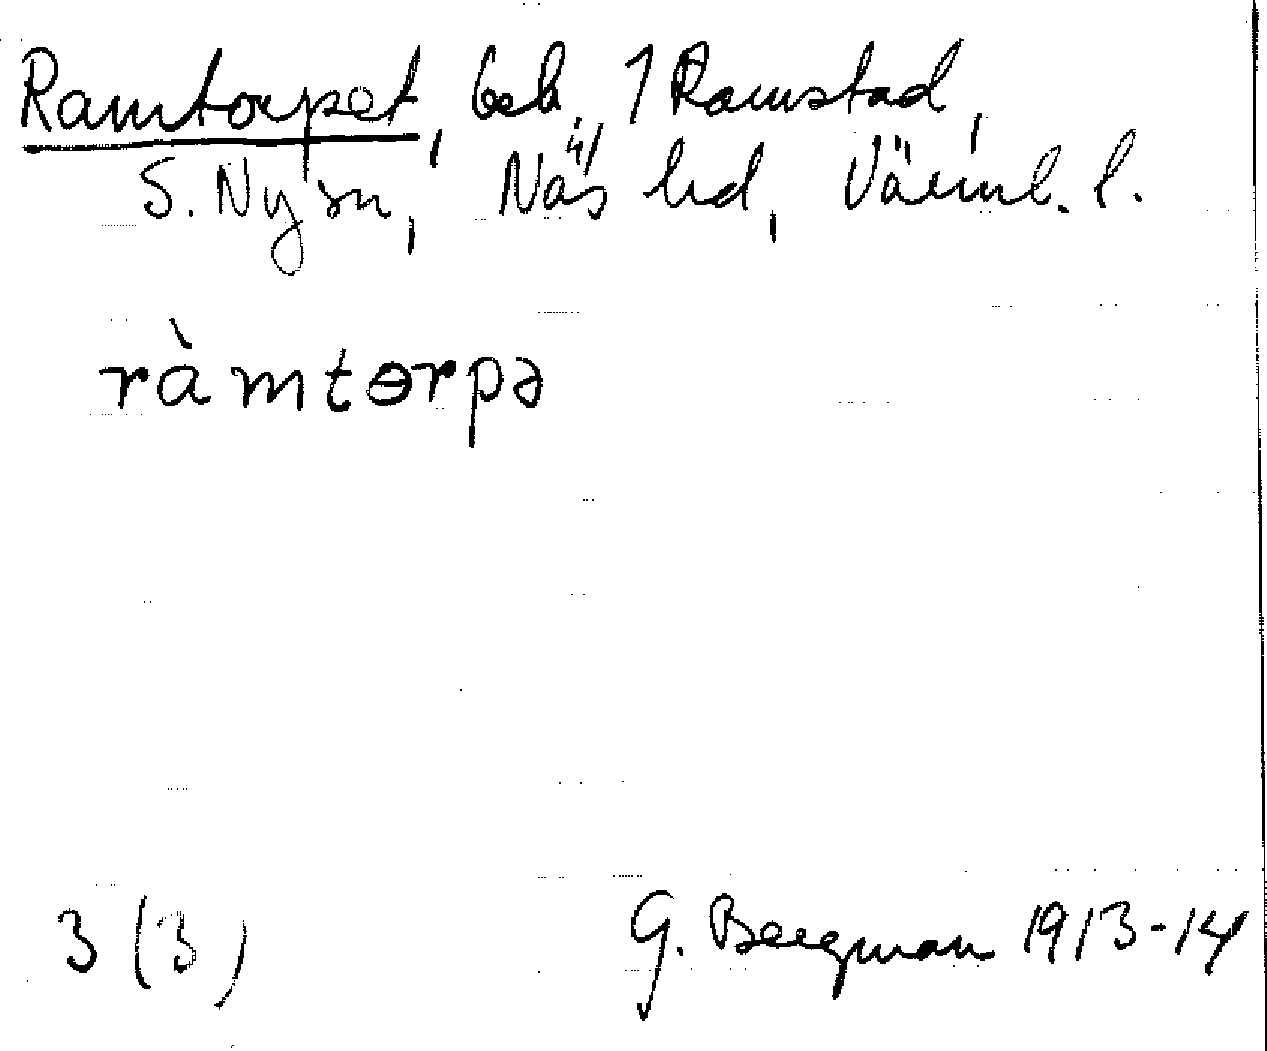 Ramtorpet, beb. 1 Ramstad,
S. Ny sn, Näs hd, Värml. l.
ràmtɵrpə
3 (3) G. Bergman 1913-14